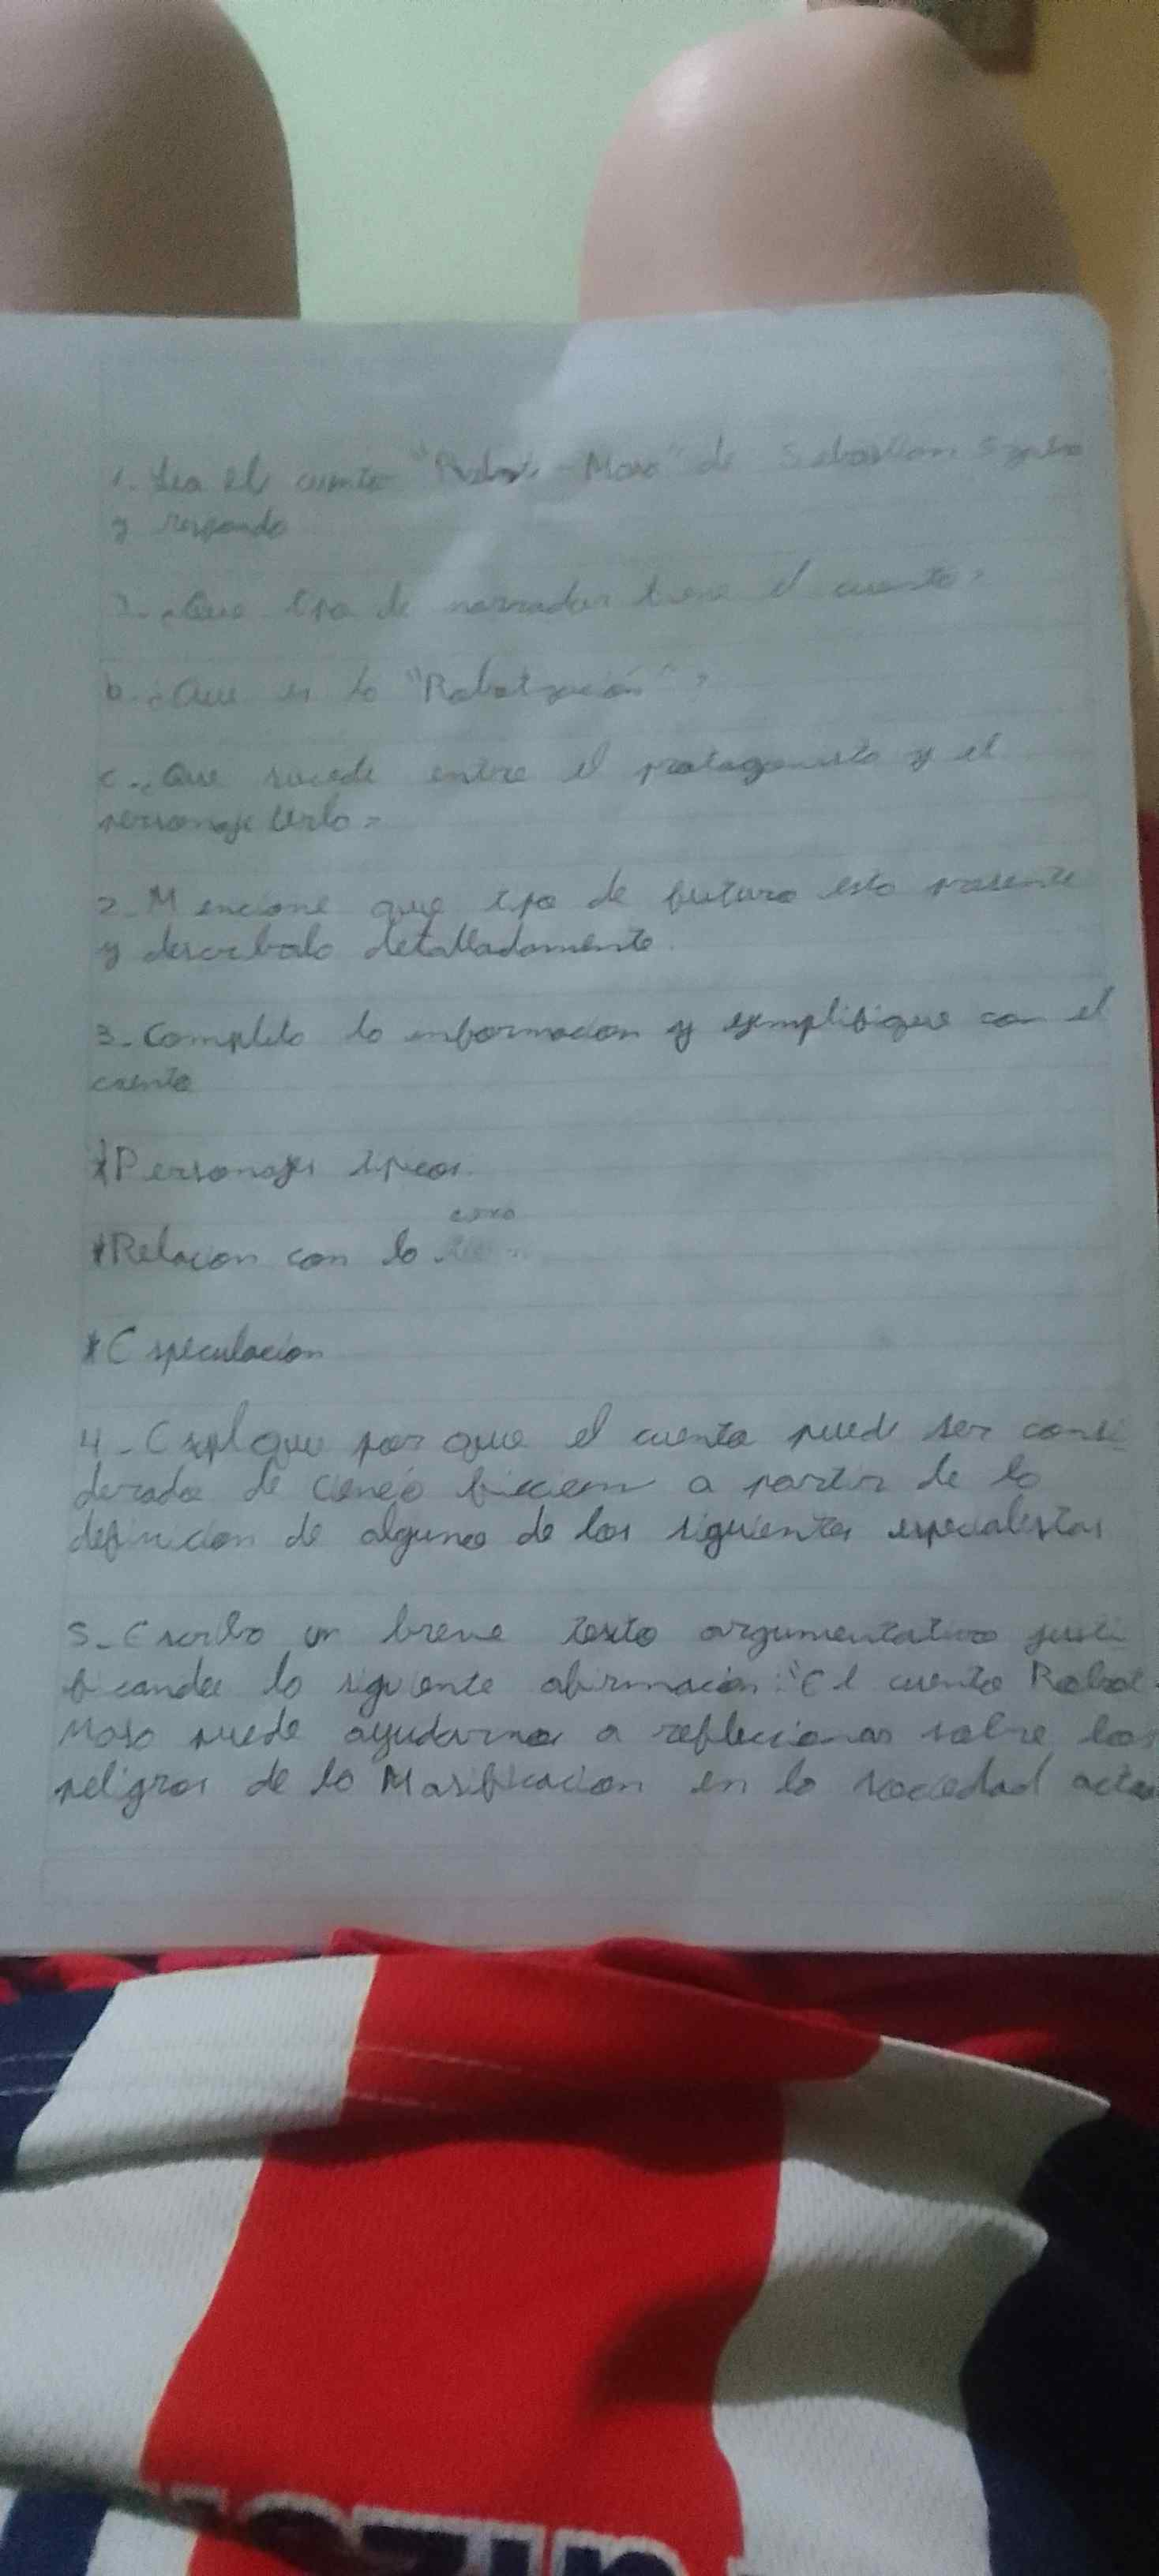 1. Lea el cuento "Robot-Masa" de Sebastian
y responda
¿Que tipo de narrador tiene el cuento?
b. ¿Que es la "Robotización"?
c. ¿Que sucede entre el protagonista y el
personaje
2. Mencione que tipo de futuro esta presente
y describalo detalladamente.
3. Completa la informacion y ejemplifique con el
cuento
*Personajes tipicos
*Relacion con la
*Especulacion
4. Explique por que el cuento puede ser consi
derado de ciencia ficcion a partir de la
definicion de alguno de los siguientes especialistas
5. Escriba un breve texto argumentativo justi
ficando la siguiente afirmacion: "El cuento Robot
Masa puede ayudarnos a reflecionar sobre los
peligros de la Masificacion en la sociedad